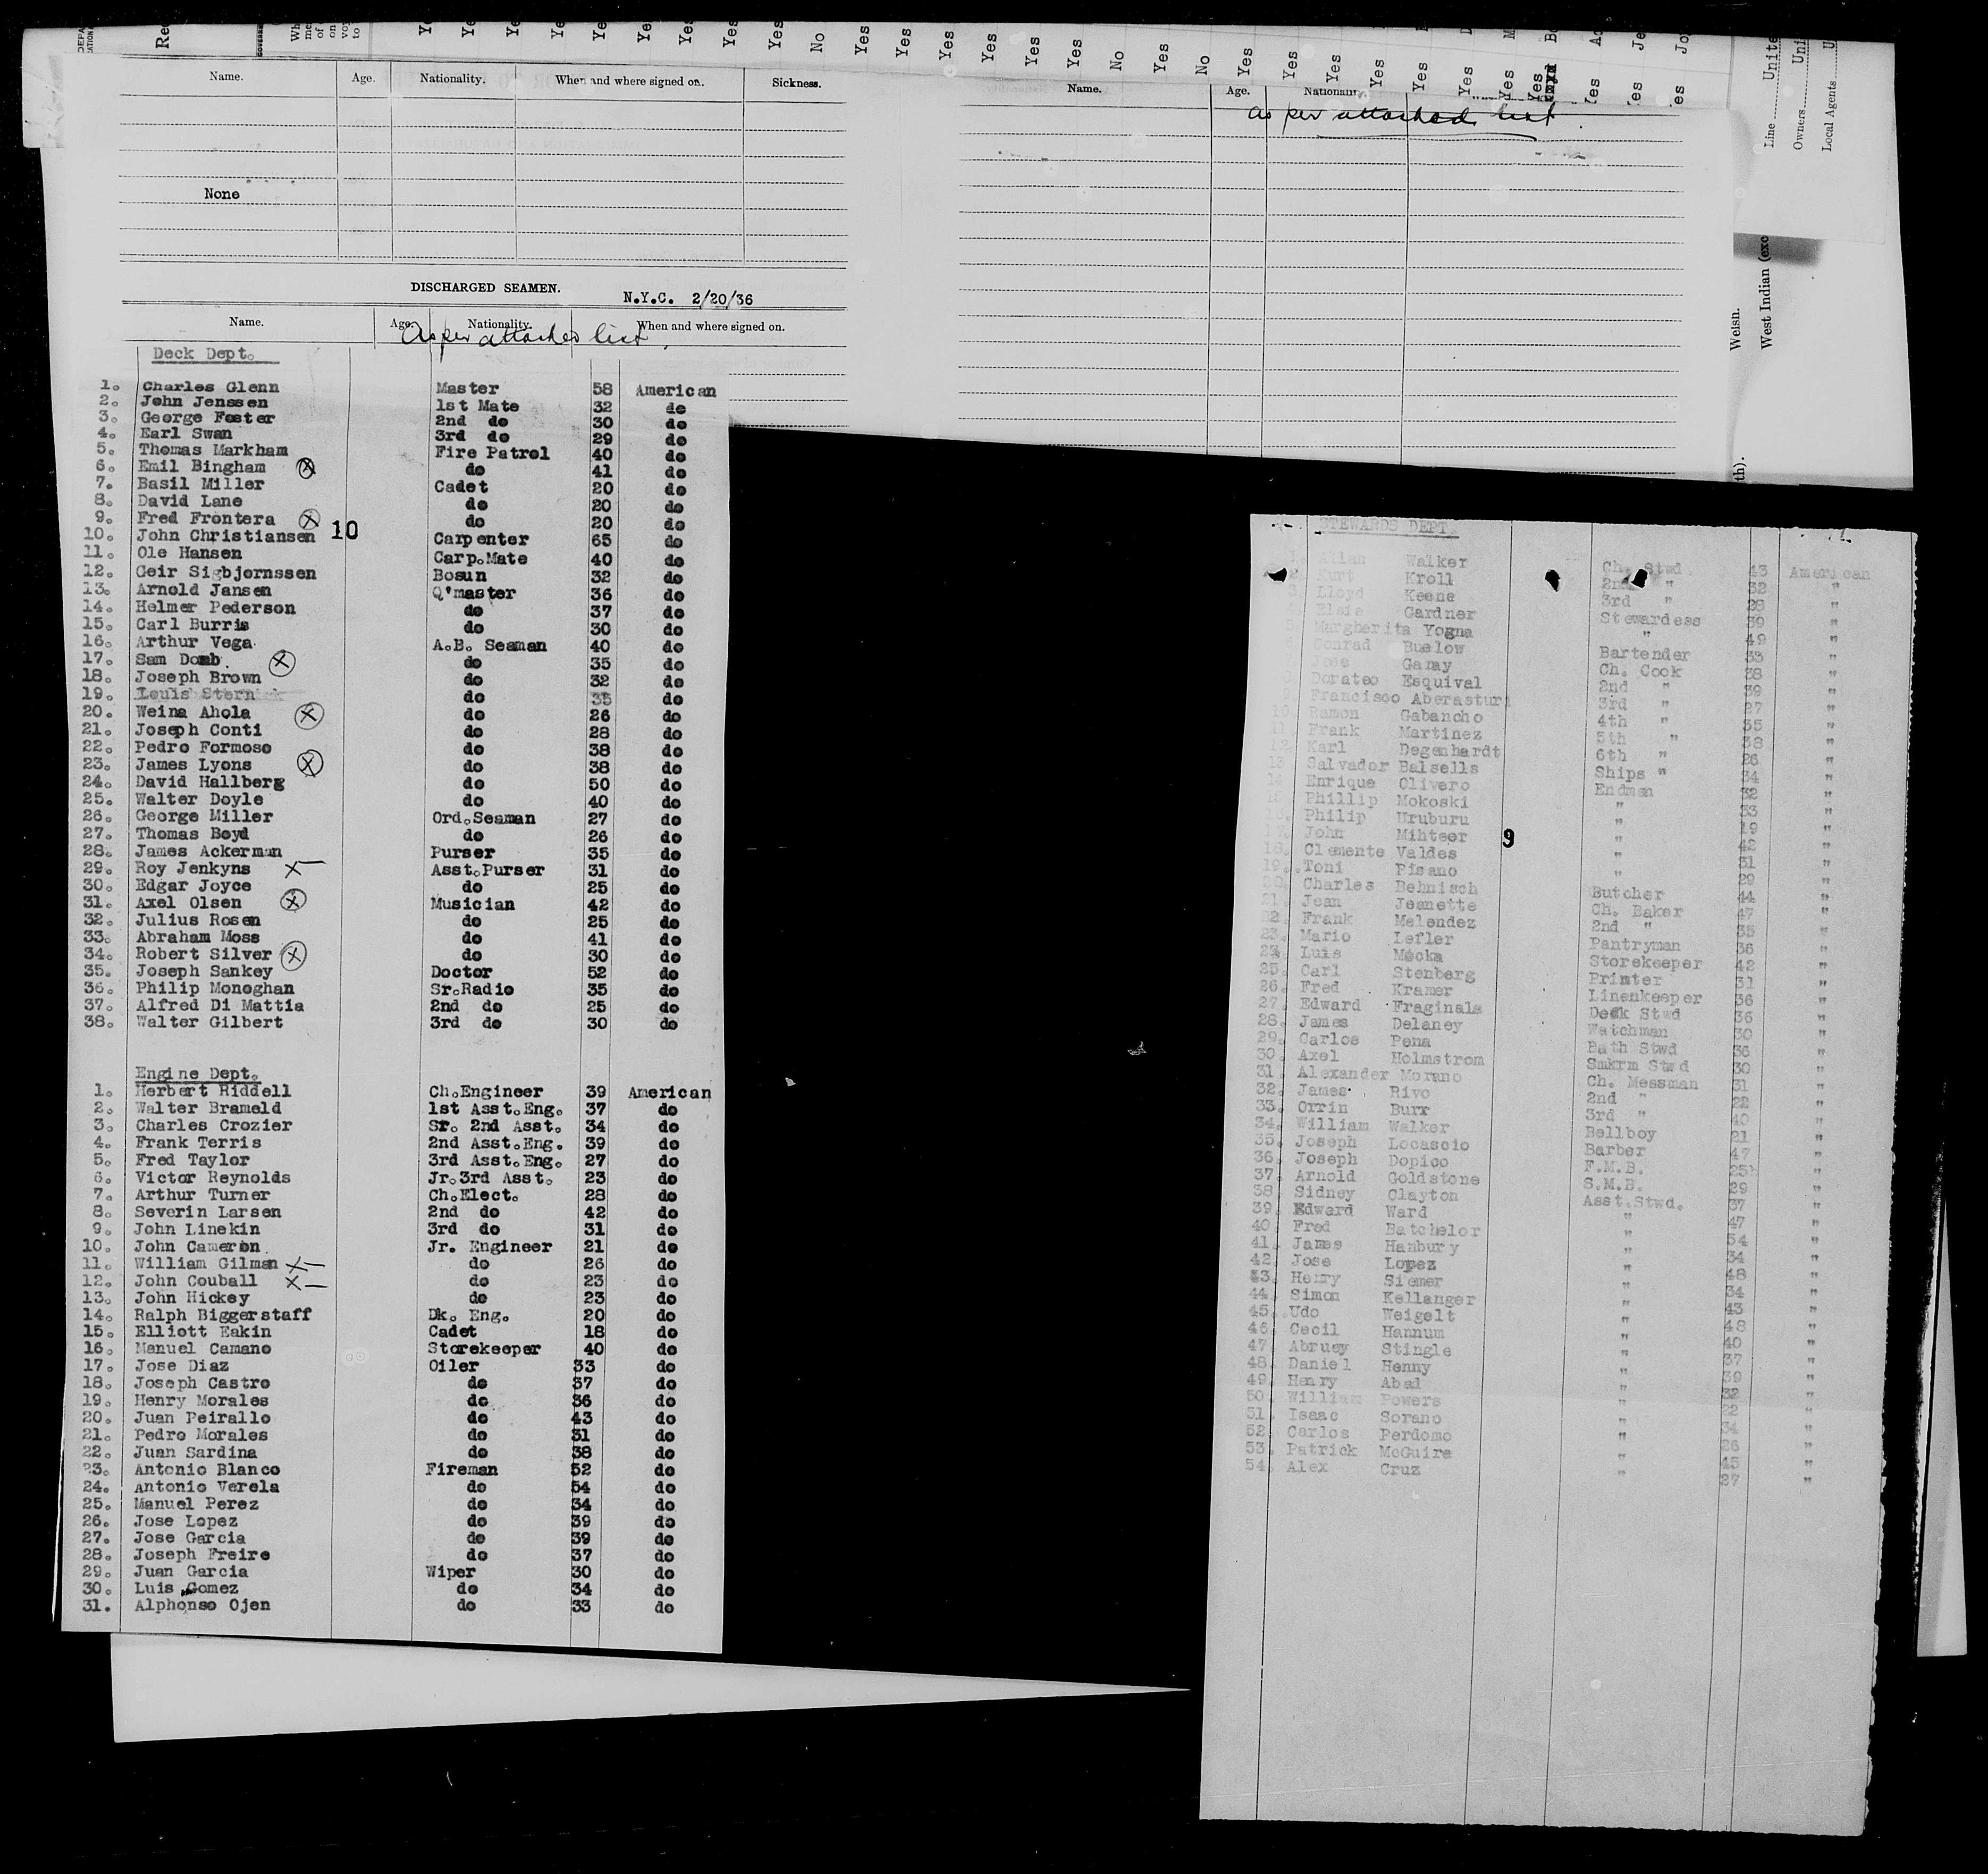 Name. Age. Nationality. When and where signed on. Sickness.
None
DISCHARGED SEAMEN. N.Y.C. 2/20/36
Name. Age. Nationality. When and where signed on.
As per attached list
Deck Dept.
1. Charles Glenn Master 58 American
2. John Jenssen 1st Mate 32 do
3. George Foster 2nd do 30 do
4. Earl Swan 3rd do 29 do
5. Thomas Markham Fire Patrol 40 do
6. Emil Bingham do 41 do
7. Basil Miller Cadet 20 do
8. David Lane do 20 do
9. Fred Frontera do 20 do
10. John Christiansen 10 Carpenter 65 do
11. Ole Hansen Carp.Mate 40 do
12. Geir Sigbjornssen Bosun 32 do
13. Arnold Jansen Q'master 36 do
14. Helmer Pederson do 37 do
15. Carl Burris do 30 do
16. Arthur Vega A.B. Seaman 40 do
17. Sam Domb do 35 do
18. Joseph Brown do 32 do
19. Louis Stern do 35 do
20. Weina Ahola do 26 do
21. Joseph Conti do 28 do
22. Pedro Formoso do 38 do
23. James Lyons do 38 do
24. David Hallberg do 50 do
25. Walter Doyle do 40 do
26. George Miller Ord.Seaman 27 do
27. Thomas Boyd do 26 do
28. James Ackerman Purser 35 do
29. Roy Jenkyns Asst.Purser 31 do
30. Edgar Joyce do 25 do
31. Axel Olsen Musician 42 do
32. Julius Rosen do 25 do
33. Abraham Moss do 41 do
34. Robert Silver do 30 do
35. Joseph Sankey Doctor 52 do
36. Philip Monoghan Sr.Radio 35 do
37. Alfred Di Mattia 2nd do 25 do
38. Walter Gilbert 3rd do 30 do
Engine Dept.
1. Herbert Riddell Ch.Engineer 39 American
2. Walter Brameld 1st Asst.Eng. 37 do
3. Charles Crozier Sr. 2nd Asst. 34 do
4. Frank Terris 2nd Asst.Eng. 39 do
5. Fred Taylor 3rd Asst.Eng. 27 do
6. Victor Reynolds Jr.3rd Asst. 23 do
7. Arthur Turner Ch.Elect. 28 do
8. Severin Larsen 2nd do 42 do
9. John Linekin 3rd do 31 do
10. John Cameron. Jr. Engineer 21 do
11. William Gilman do 26 do
12. John Couball do 23 do
13. John Hickey do 23 do
14. Ralph Biggerstaff Dk. Eng. 20 do
15. Elliott Eakin Cadet 18 do
16. Manuel Camano Storekeeper 40 do
17. Jose Diaz Oiler 33 do
18. Joseph Castro do 37 do
19. Henry Morales do 36 do
20. Juan Peirallo do 43 do
21. Pedro Morales do 31 do
22. Juan Sardina do 38 do
23. Antonio Blanco Fireman 52 do
24. Antonio Verela do 54 do
25. Manuel Perez do 34 do
26. Jose Lopez do 39 do
27. Jose Garcia do 39 do
28. Joseph Freire do 37 do
29. Juan Garcia Wiper 30 do
30. Luis Gomez do 34 do
31. Alphonso Ojen do 33 do
Yes Yes No Yes Yes Yes Yes Yes Yes No Yes No Yes Yes Yes Yes Yes Yes Yes Yes
Name. Age.
as per attached list
Line Unite
Owners Uni
Local Agents U
Weisn.
West Indian (exc
STEWARDS DEPT.
1. Allan Walker Ch. Stwd 43 American
2. Kurt Kroll 2nd " 32 "
3. Lloyd Keene 3rd " 28 "
Elsie Gardner Stewardess 39 "
Margherita Yogna " 49 "
Conrad Buelow Bartender 33 "
Jose Garay Ch. Cook 38 "
Dorateo Esquival 2nd " 39 "
Francisco Aberasturi 3rd " 27 "
10. Ramon Gabancho 4th " 35 "
11. Frank Martinez 5th " 38 "
12. Karl Degenhardt 6th " 26 "
13. Salvador Balsells Ships " 34 "
14. Enrique Olivero Endman 32 "
15. Phillip Mokoski " 33 "
16. Philip Uruburu " 19 "
17. John Mihteor 9 " 42 "
18. Clemente Valdes " 31 "
19. Toni Pisano " 29 "
20. Charles Behnisch Butcher 44 "
21. Jean Jeanette Ch. Baker 47 "
22. Frank Melendez 2nd " 35 "
23. Mario Lefler Pantryman 36 "
24. Luis Mocka Storekeeper 42 "
25. Carl Stenberg Printer 31 "
26. Fred Kramer Linenkeeper 36 "
27. Edward Fraginals Deck Stwd 36 "
28. James Delaney Watchman 30 "
29. Carlos Pena Bath Stwd 36 "
30. Axel Holmstrom Smkrm Stwd 30 "
31. Alexander Morano Ch. Messman 31 "
32. James Rivo 2nd " 22 "
33. Orrin Burr 3rd " 40 "
34. William Walker Bellboy 21 "
35. Joseph Locascio Barber 47 "
36. Joseph Dopico F.M.B. 25 "
37. Arnold Goldstone S.M.B. 29 "
38. Sidney Clayton Asst.Stwd. 37 "
39. Edward Ward " 47 "
40. Fred Batchelor " 54 "
41. James Hanbury " 34 "
42. Jose Lopez " 48 "
43. Henry Siemer " 34 "
44. Simon Kellanger " 43 "
45. Udo Weigelt " 48 "
46. Cecil Hannum " 40 "
47. Abruey Stingle " 37 "
48. Daniel Henny " 39 "
49. Henry Abel " 32 "
50. William Powers " 22 "
51. Isaac Sorano " 34 "
52. Carlos Perdomo " 26 "
53. Patrick McGuire " 45 "
54. Alex Cruz " 27 "